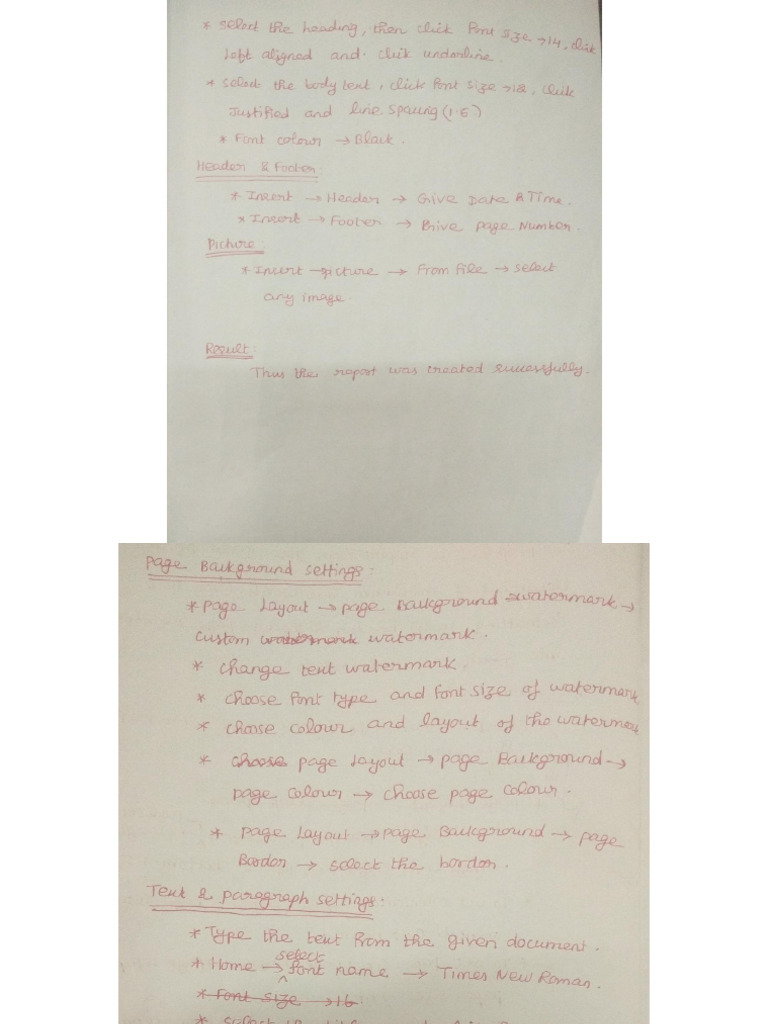 * select the heading, then click Font Size → 14, click
left aligned and click underline.
* select the body text, click font size → 12, click
Justified and line spacing (1.5)
* Font colour → Black.
Header & Footer:
* Insert → Header → Give Date & Time.
* Insert → Footer → Give page Number.
Picture:
* Insert → picture → From file → select
any image.
Result:
Thus the report was created successfully.
Page Background settings:
* page layout → page Background → watermark →
custom watermark watermark.
* change text watermark.
* choose font type and font size of watermark
* choose colour and layout of the watermark
* choose page layout → page Background →
page colour → choose page colour.
* page layout → page Background → page
Border → select the border.
Text & paragraph settings:
* Type the text from the given document.
select
* Home → font name → Times New Roman.
* Font size → 16